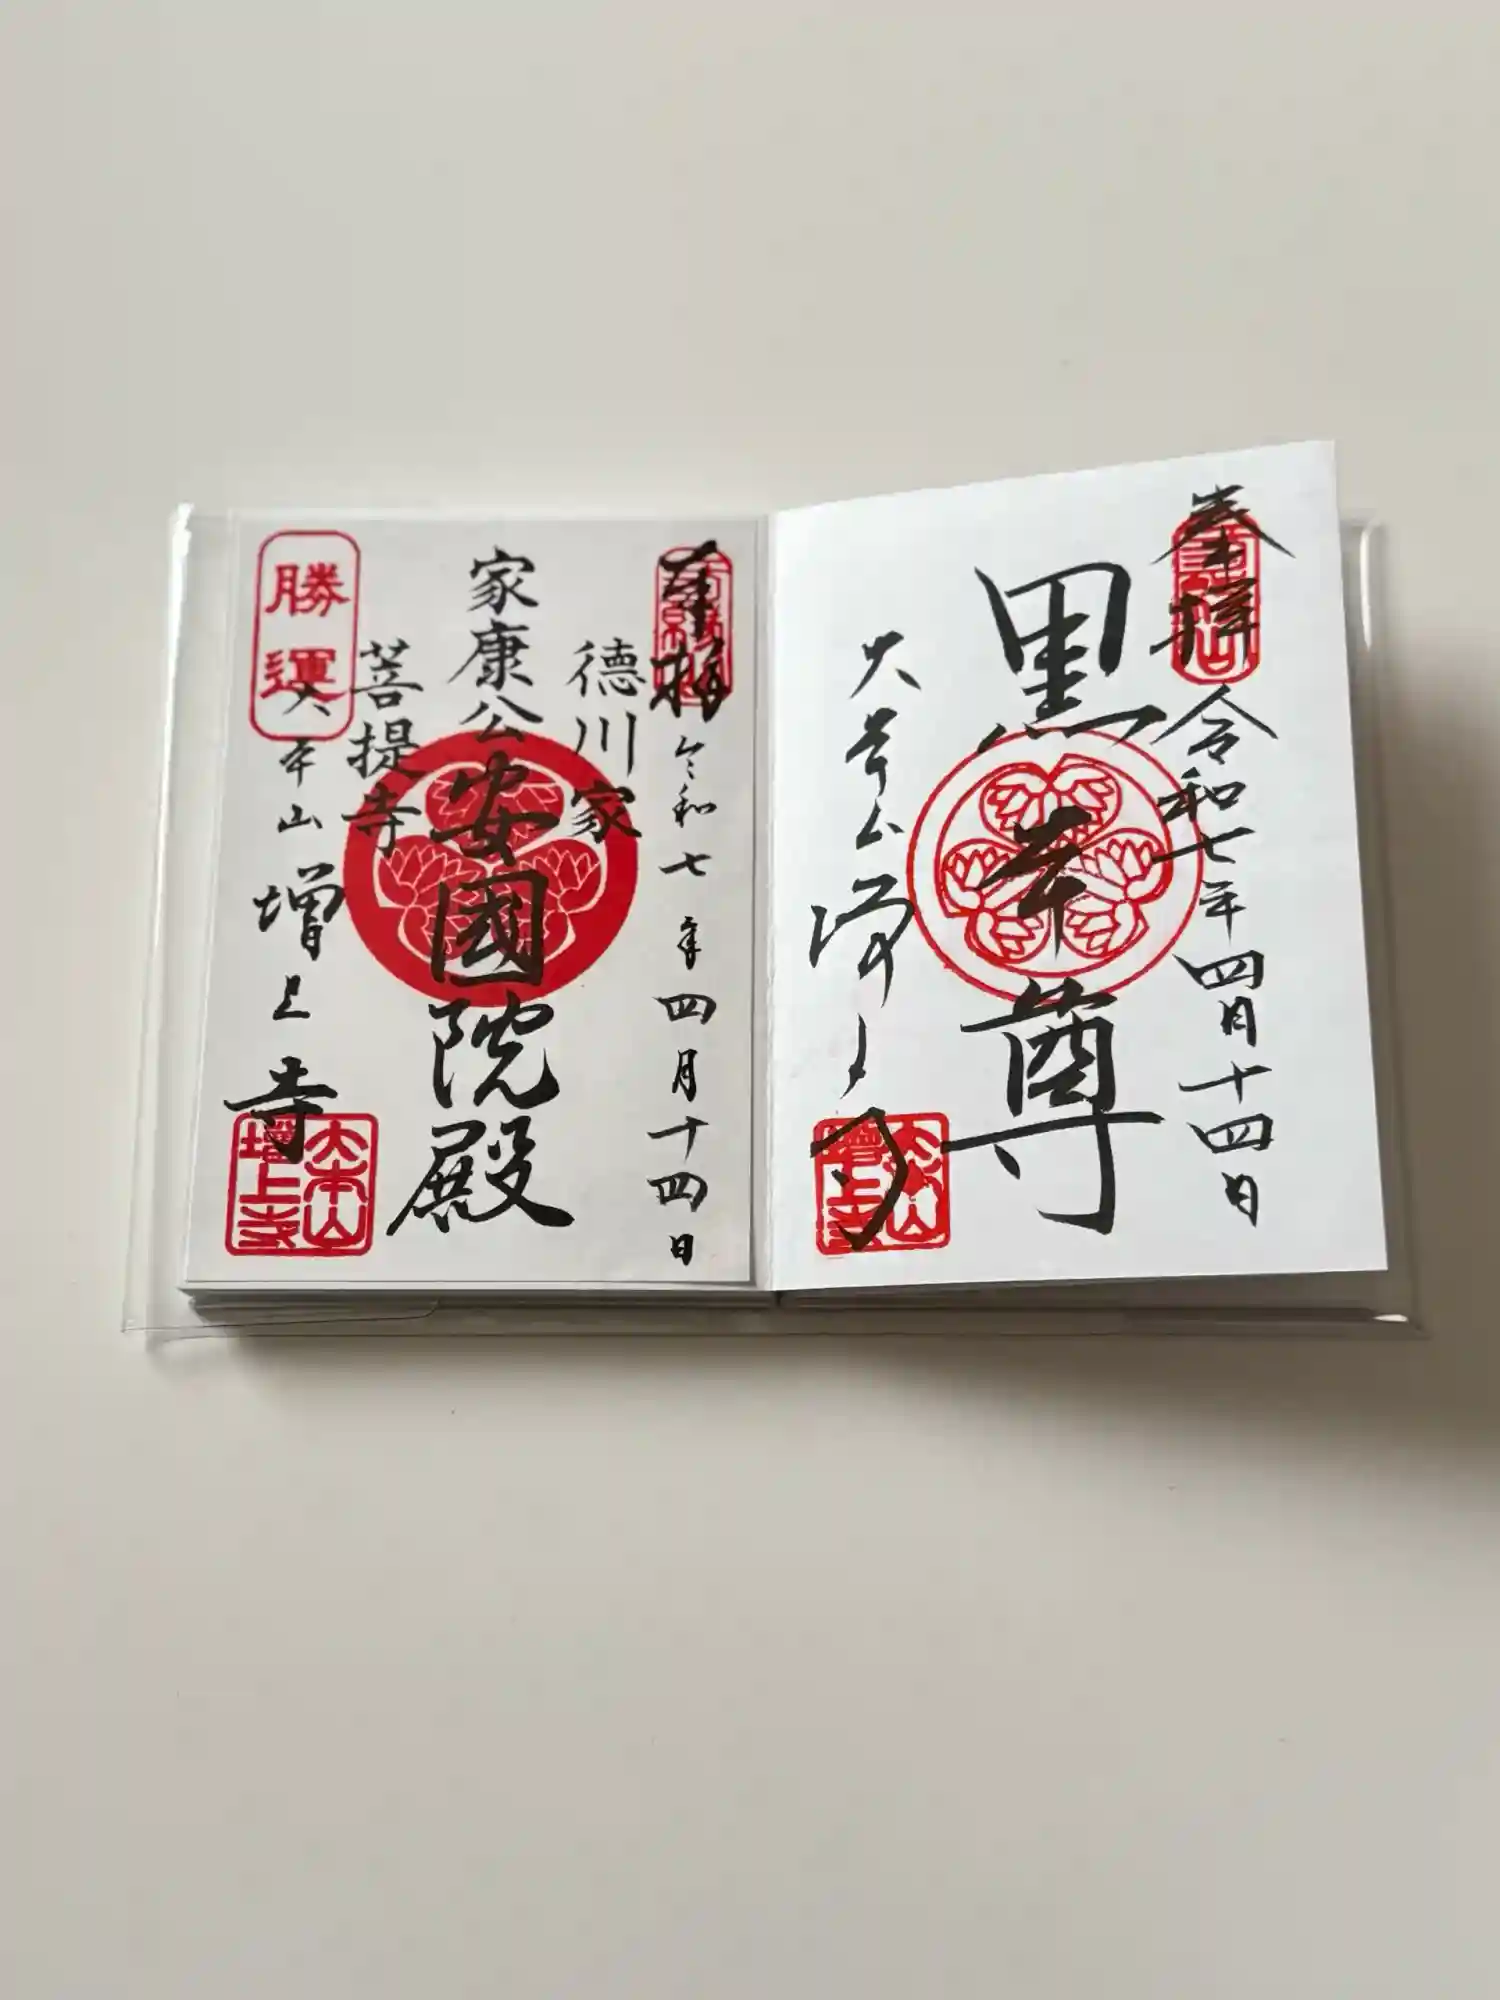 奉拝
令和七年四月十四日
黒本尊
大本山増上寺
大本山
増上寺
奉拝
令和七年四月十四日
徳川家
家康公
安國院殿
菩提寺
勝運
大本山増上寺
大本山
増上寺